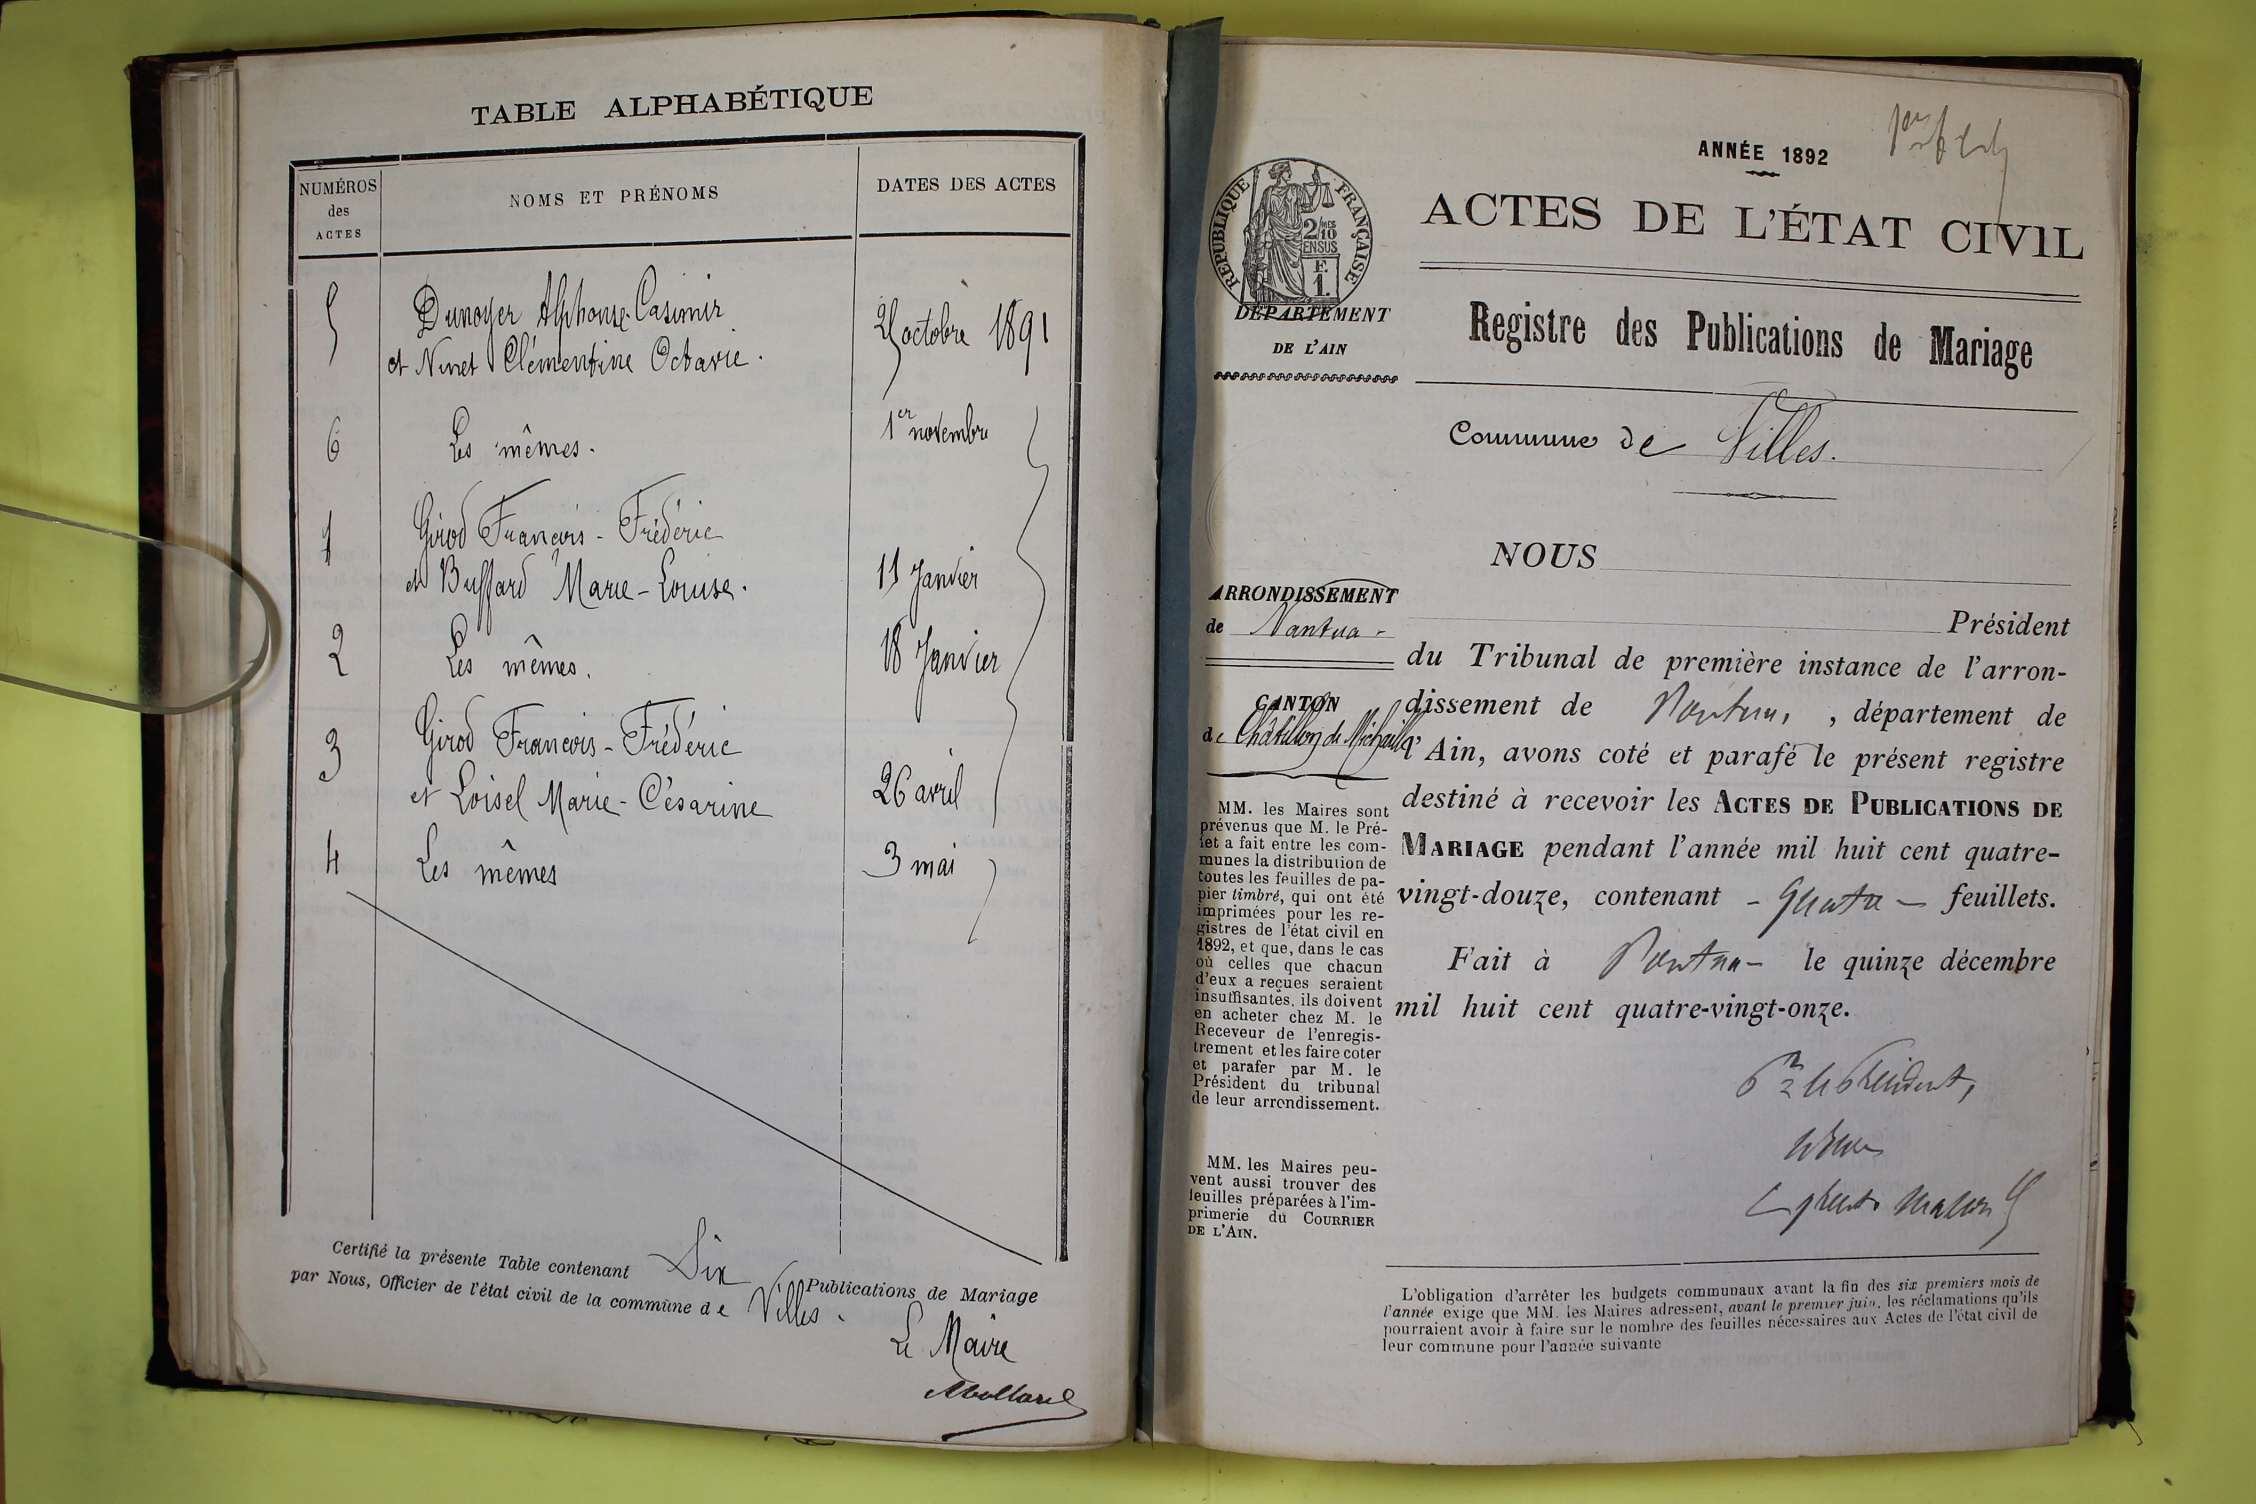 TABLE ALPHABÉTIQUE
NUMÉROS des ACTES
NOMS ET PRÉNOMS
DATES DES ACTES
5 Dunoyer Alphonse-Casimir
et Ninet Clémentine Octavie.
25 octobre 1891
6 Les mêmes.
1er novembre
1 Girod Francois-Frédéric
et Buffard Marie-Louise.
11 Janvier
2 Les mêmes.
18 Janvier
3 Girod Francois-Frédéric
et Loisel Marie-Césarine
26 avril
4 Les mêmes
3 mai
Certifié la présente Table contenant Six Publications de Mariage
par Nous, Officier de l'état civil de la commune de Villes.
Le Maire
ANNÉE 1892
RÉPUBLIQUE FRANÇAISE
2/10 MES
EN SUS
F.
1.
ACTES DE L'ÉTAT CIVIL
DÉPARTEMENT
DE L'AIN
Registre des Publications de Mariage
Commune de Villes.
ARRONDISSEMENT
de Nantua -
CANTON
de Châtillon de Michaille
MM. les Maires sont
prévenus que M. le Pré-
fet a fait entre les com-
munes la distribution de
toutes les feuilles de pa-
pier timbré, qui ont été
imprimées pour les re-
gistres de l'état civil en
1892, et que, dans le cas
où celles que chacun
d'eux a reçues seraient
insuffisantes, ils doivent
en acheter chez M. le
Receveur de l'enregis-
trement et les faire coter
et parafer par M. le
Président du tribunal
de leur arrondissement.
MM. les Maires peu-
vent aussi trouver des
feuilles préparées à l'im-
primerie du COURRIER
DE L'AIN.
NOUS
Président
du Tribunal de première instance de l'arron-
dissement de Nantua, , département de
l'Ain, avons coté et parafé le présent registre
destiné à recevoir les ACTES DE PUBLICATIONS DE
MARIAGE pendant l'année mil huit cent quatre-
vingt-douze, contenant - quatre - feuillets.
Fait à Nantua - le quinze décembre
mil huit cent quatre-vingt-onze.
Pr le Président,
L'obligation d'arrêter les budgets communaux avant la fin des six premiers mois de
l'année exige que MM. les Maires adressent, avant le premier juin, les réclamations qu'ils
pourraient avoir à faire sur le nombre des feuilles nécessaires aux Actes de l'état civil de
leur commune pour l'année suivante